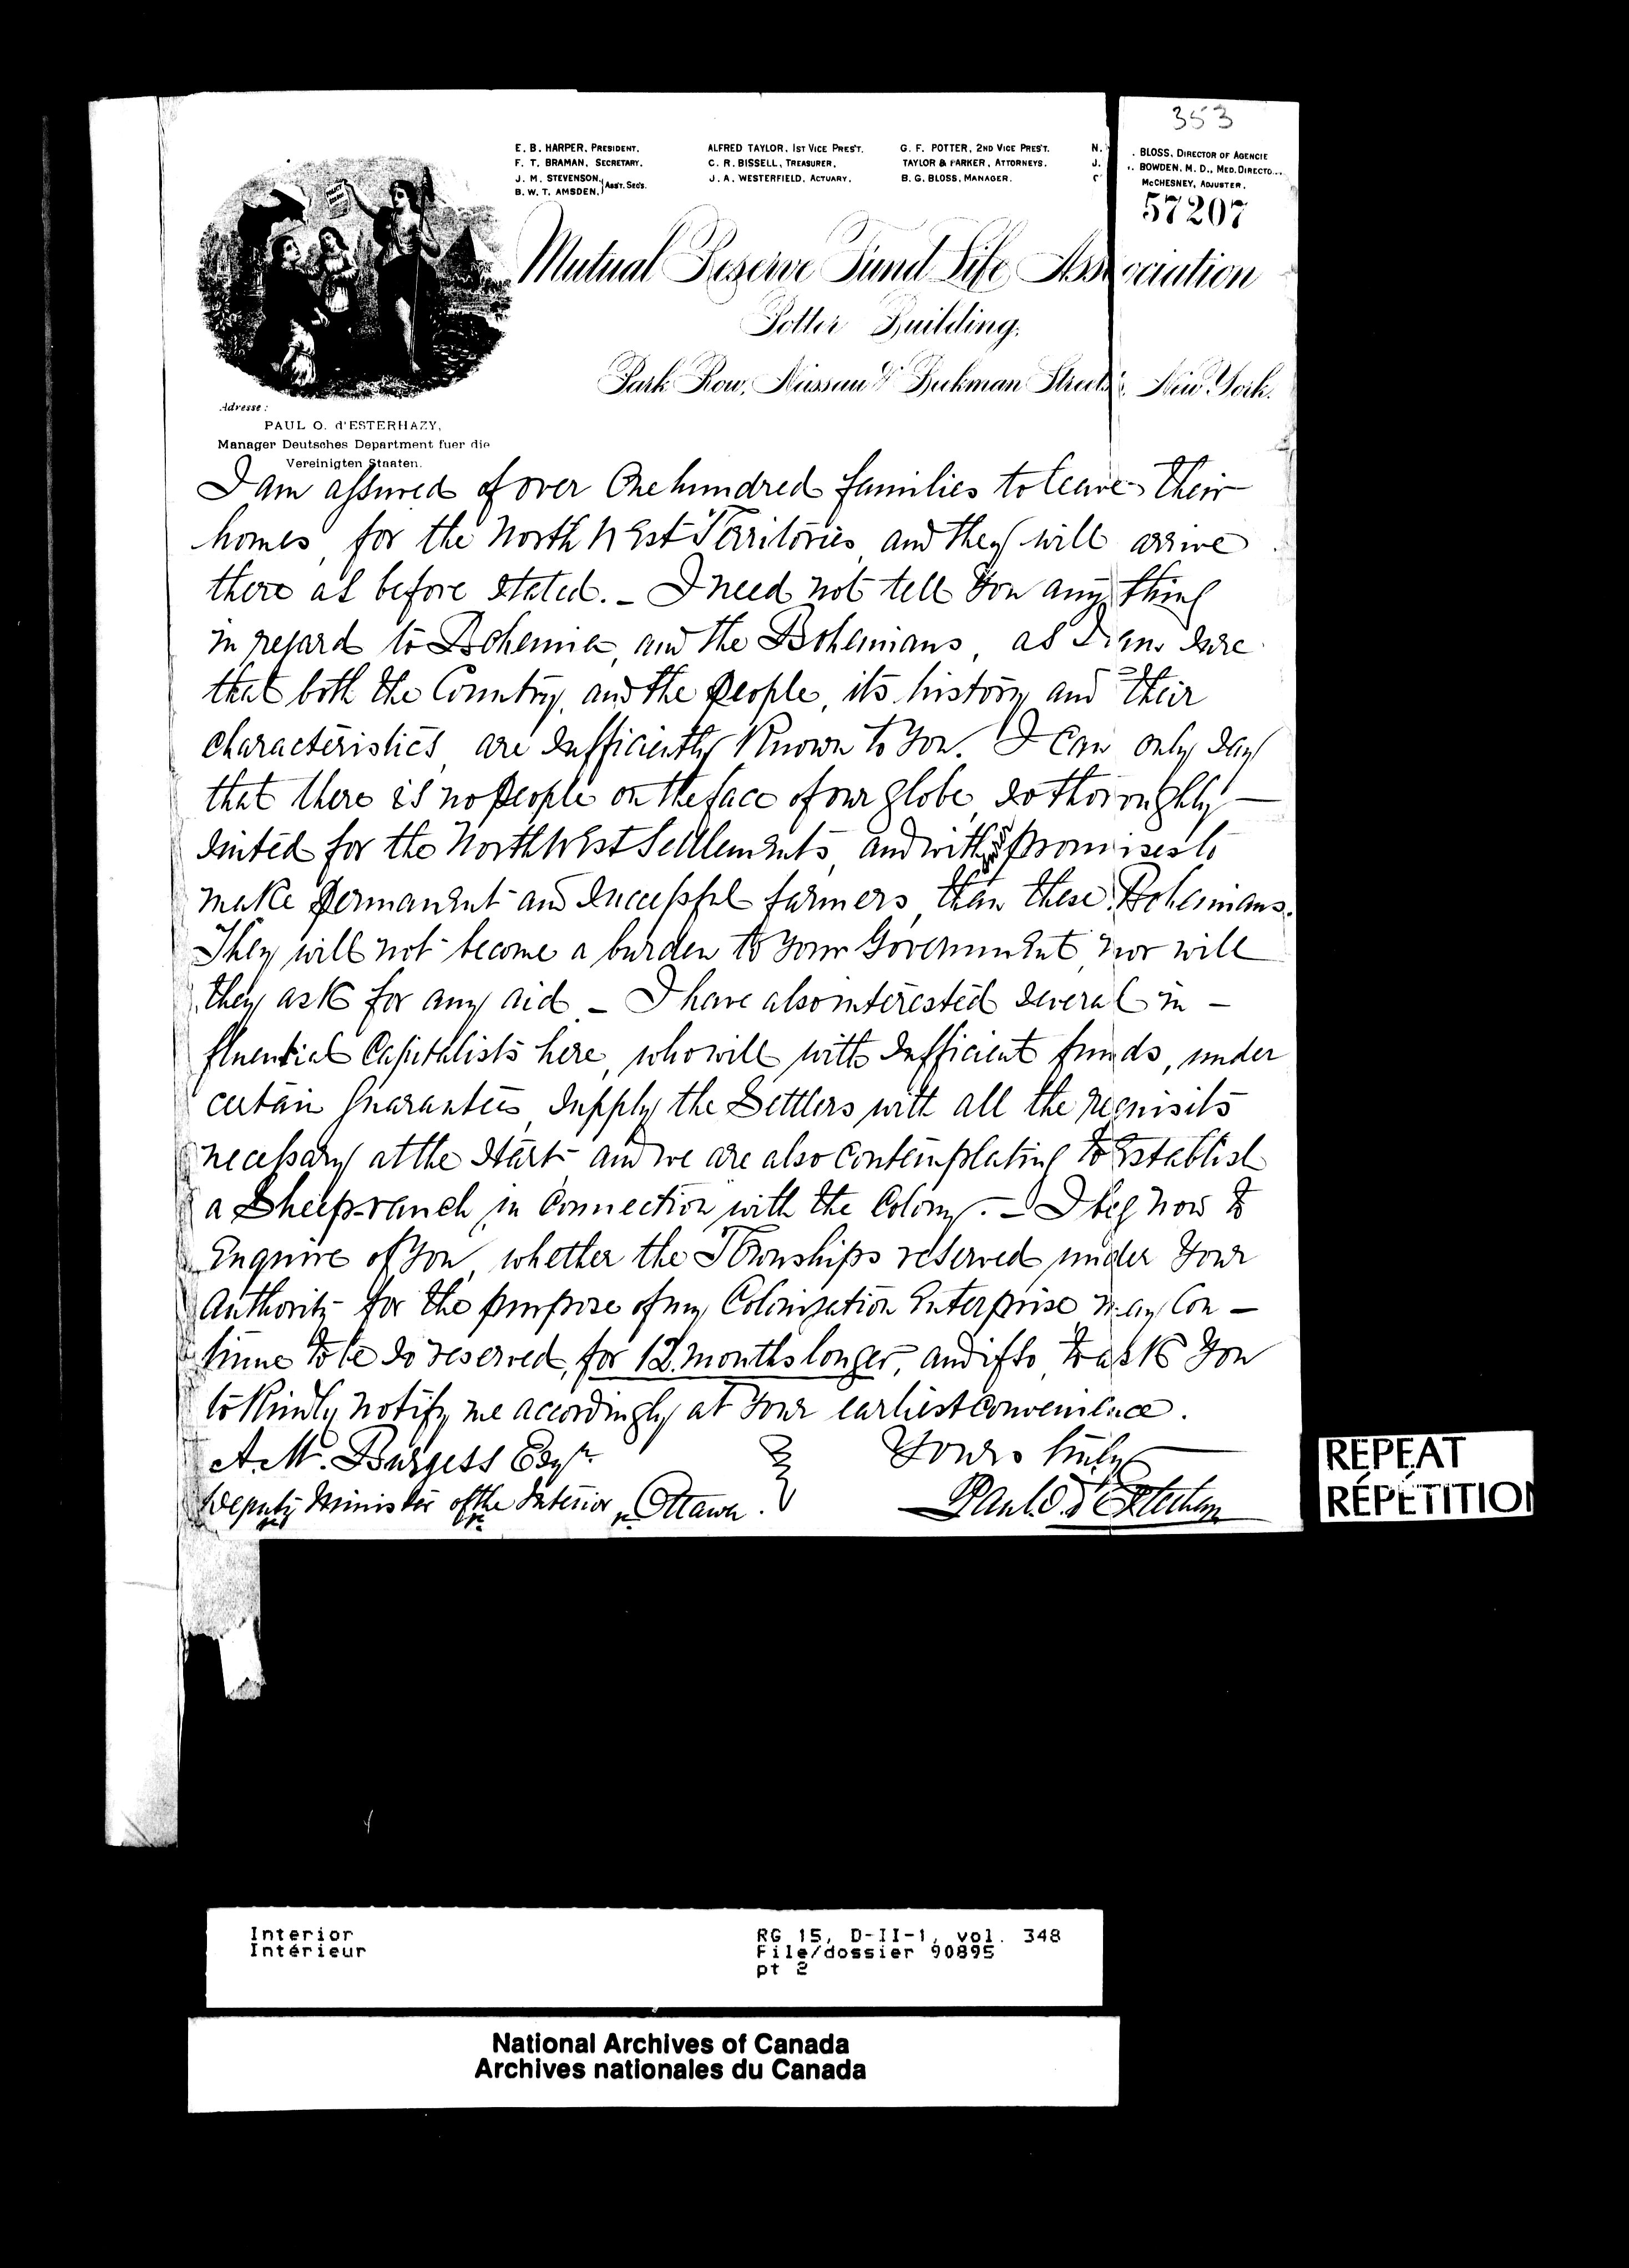 353
E. B. HARPER, PRESIDENT.
F. T. BRAMAN, SECRETARY.
J. M. STEVENSON, } Ass't. Sec's.
B. W. T. AMSDEN,
ALFRED TAYLOR, 1ST VICE PRES'T.
C. R. BISSELL, TREASURER.
J. A. WESTERFIELD, ACTUARY.
G. F. POTTER, 2ND VICE PRES'T.
TAYLOR & PARKER, ATTORNEYS.
B. G. BLOSS, MANAGER.
N.
J.
. BLOSS, DIRECTOR OF AGENCIE
. BOWDEN, M. D., MED. DIRECTO
McCHESNEY, ADJUSTER.
57207
Mutual Reserve Fund Life Association
Potter Building,
Park Row, Nassau & Beekman Streets, New York.
Adresse:
PAUL O. d'ESTERHAZY,
Manager Deutsches Department fuer die
Vereinigten Staaten.
I am assured of over One hundred families to leave their
homes, for the North West Territories, and they will arrive
there as before stated. – I need not tell You any thing
in regard to Bohemia, and the Bohemians, as I am sure
that both the Country, and the People, its history and their
characteristics, are sufficiently Known to You. I Can only say
that there is no People on the face of our globe, so thoroughly –
suited for the North West Settlements, and with promises to
make permanent and successful farmers, than these Bohemians.
They will not become a burden to Your Government, nor will
they ask for any aid – I have also interested several in –
fluential Capitalists here, who will with sufficient funds, under
certain guarantees, supply the Settlers with all the requisits
necessary at the start – and we are also contemplating to Establish
a Sheep-ranch, in Connection with the Colony. – I beg now to
Enquire of You, whether the Townships reserved under Your
Authority for the purpose of my Colonization Enterprise may Con –
tinue to be so reserved, for 12 months longer, and if so, to ask You
to Kindly notify me accordingly at Your earliest convenience.
A. M. Burgess Esqr
Yours truly
Deputy Minister of the Interior, Ottawa.
Paul O. d'Esterhazy
REPEAT
RÉPÉTITION
Interior
Intérieur
RG 15, D-II-1, vol. 348
File/dossier 90895
pt 2
National Archives of Canada
Archives nationales du Canada